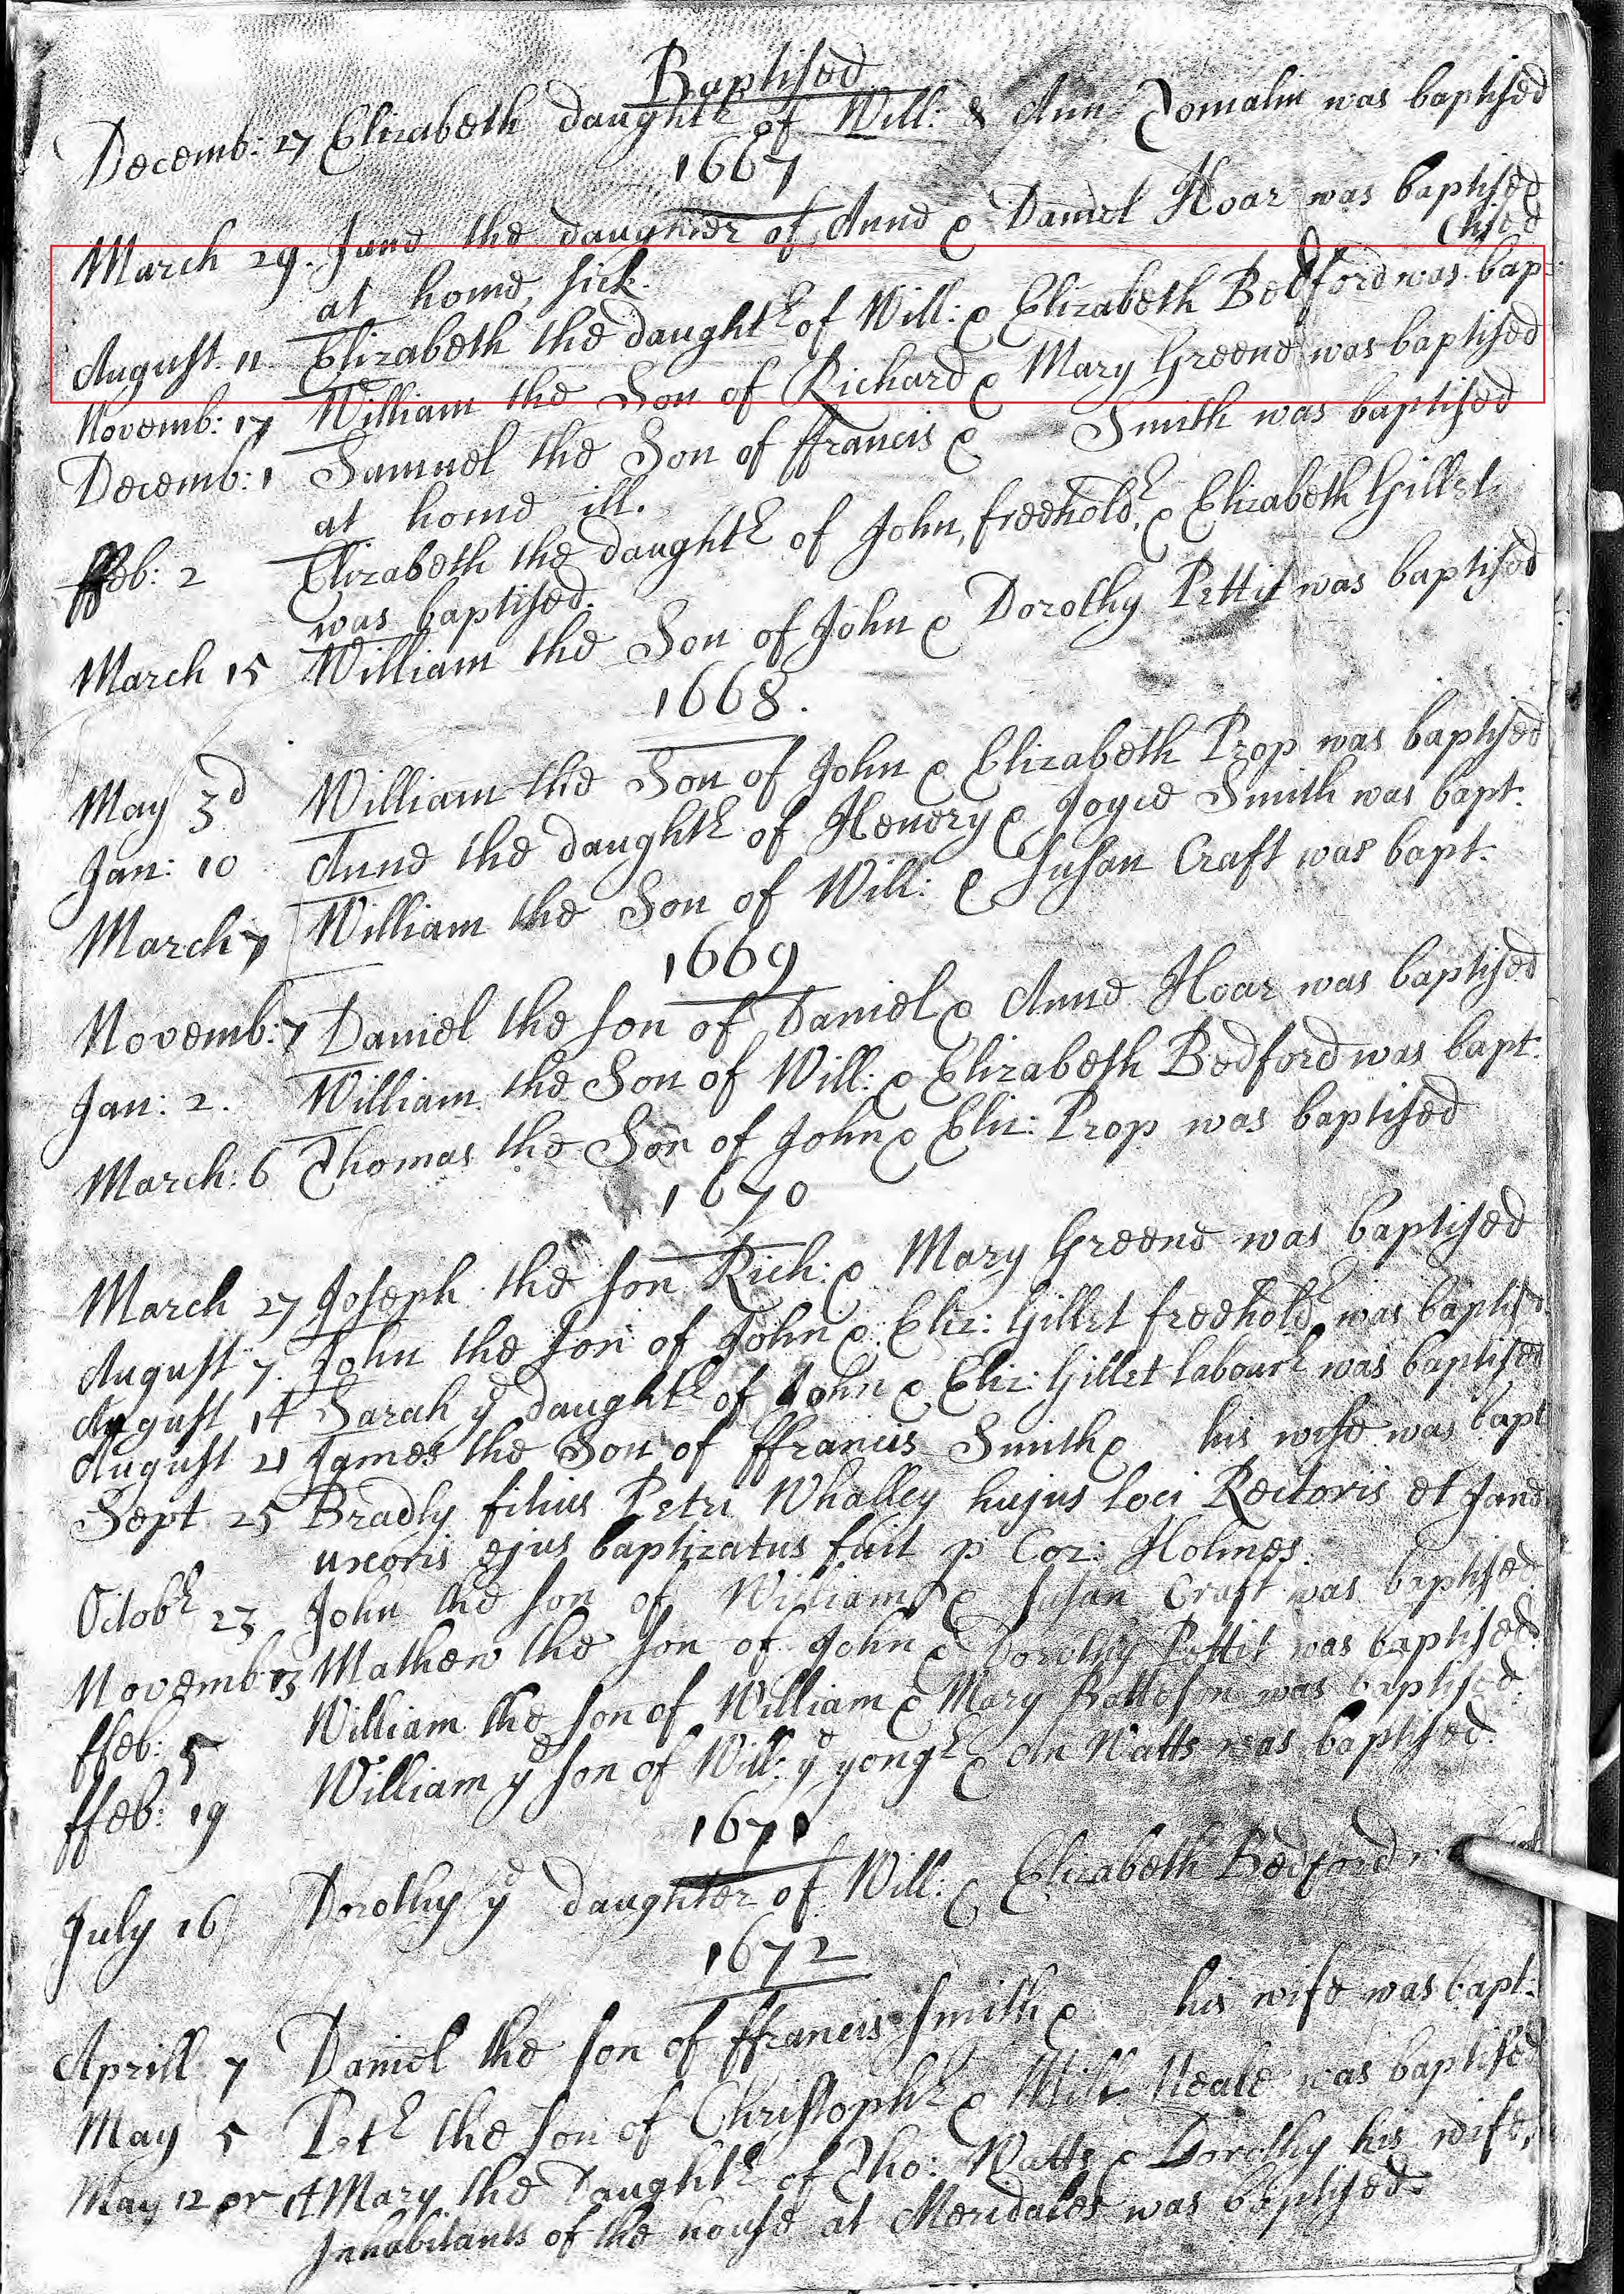 Baptised
Decemb: 27 Elizabeth daughtr of Will: & Ann Tomalin was baptised
1667
March 29. Jane the daughter of Anne & Daniel Hoar was baptised
at home, sick.
(tised
August 11 Elizabeth the daughtr of Will: & Elizabeth Bedford was bap-
Novemb: 17 William the Son of Richard & Mary Greene was baptised
Decemb: 1 Samuel the Son of ffrancis & Smith was baptised
at home ill.
ffeb: 2 Elizabeth the daughtr of John, freeholdr, & Elizabeth Gillet
was baptised.
March 15 William the Son of John & Dorothy Pettit was baptised
1668.
May 3d William the Son of John & Elizabeth Prop was baptised
Jan: 10 Anne the daughtr of Henery & Joyce Smith was bapt.
March 7 William the Son of Will: & Susan Craft was bapt.
1669
Novemb: 7 Daniel the son of Daniel & Anne Hoar was baptised
Jan: 2. William the Son of Will: & Elizabeth Bedford was bapt.
March: 6 Thomas the Son of John & Eliz: Prop was baptised
1670
March 27 Joseph the son Rich: & Mary Greene was baptised
August 7. John the son of John & Eliz: Gillet freeholdr was baptisd
August 14 Sarah ye daughtr of John & Eliz: Gillet labourr was baptised
August 21 James the Son of ffrancis Smith & his wife was bapt
Sept 25 Bradly filius Petri Whalley hujus loci Rectoris et Jane
uxoris ejus baptizatus fuit p Cor: Holmes.
Octobr 23 John the son of William & Susan Craft was baptised
Novemb: 13 Mathew the son of John & Dorothy Pettit was baptised.
ffeb: 5 William the son of William & Mary Batteson was baptised.
ffeb: 19 William ye son of Will: ye yongr & An Watts was baptised.
1671
July 16 Dorothy ye daughter of Will: & Elizabeth Bedford
1672
Aprill 7 Daniel the son of ffrancis Smith & his wife was bapt.
May 5 Petr the son of Christophr & Mill: Neale was baptised
May 12 or 14 Mary the Daughtr of Tho: Watts & Dorothy his wife,
Inhabitants of the house at Meridales was baptised.